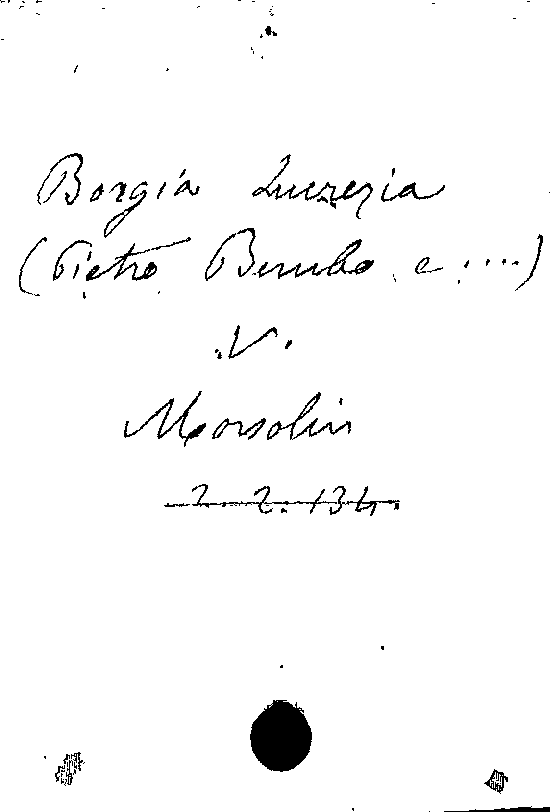 Borgia Lucrezia
(Pietro Bembo e ....)
.V.
Morsolin
2. 2. 134.